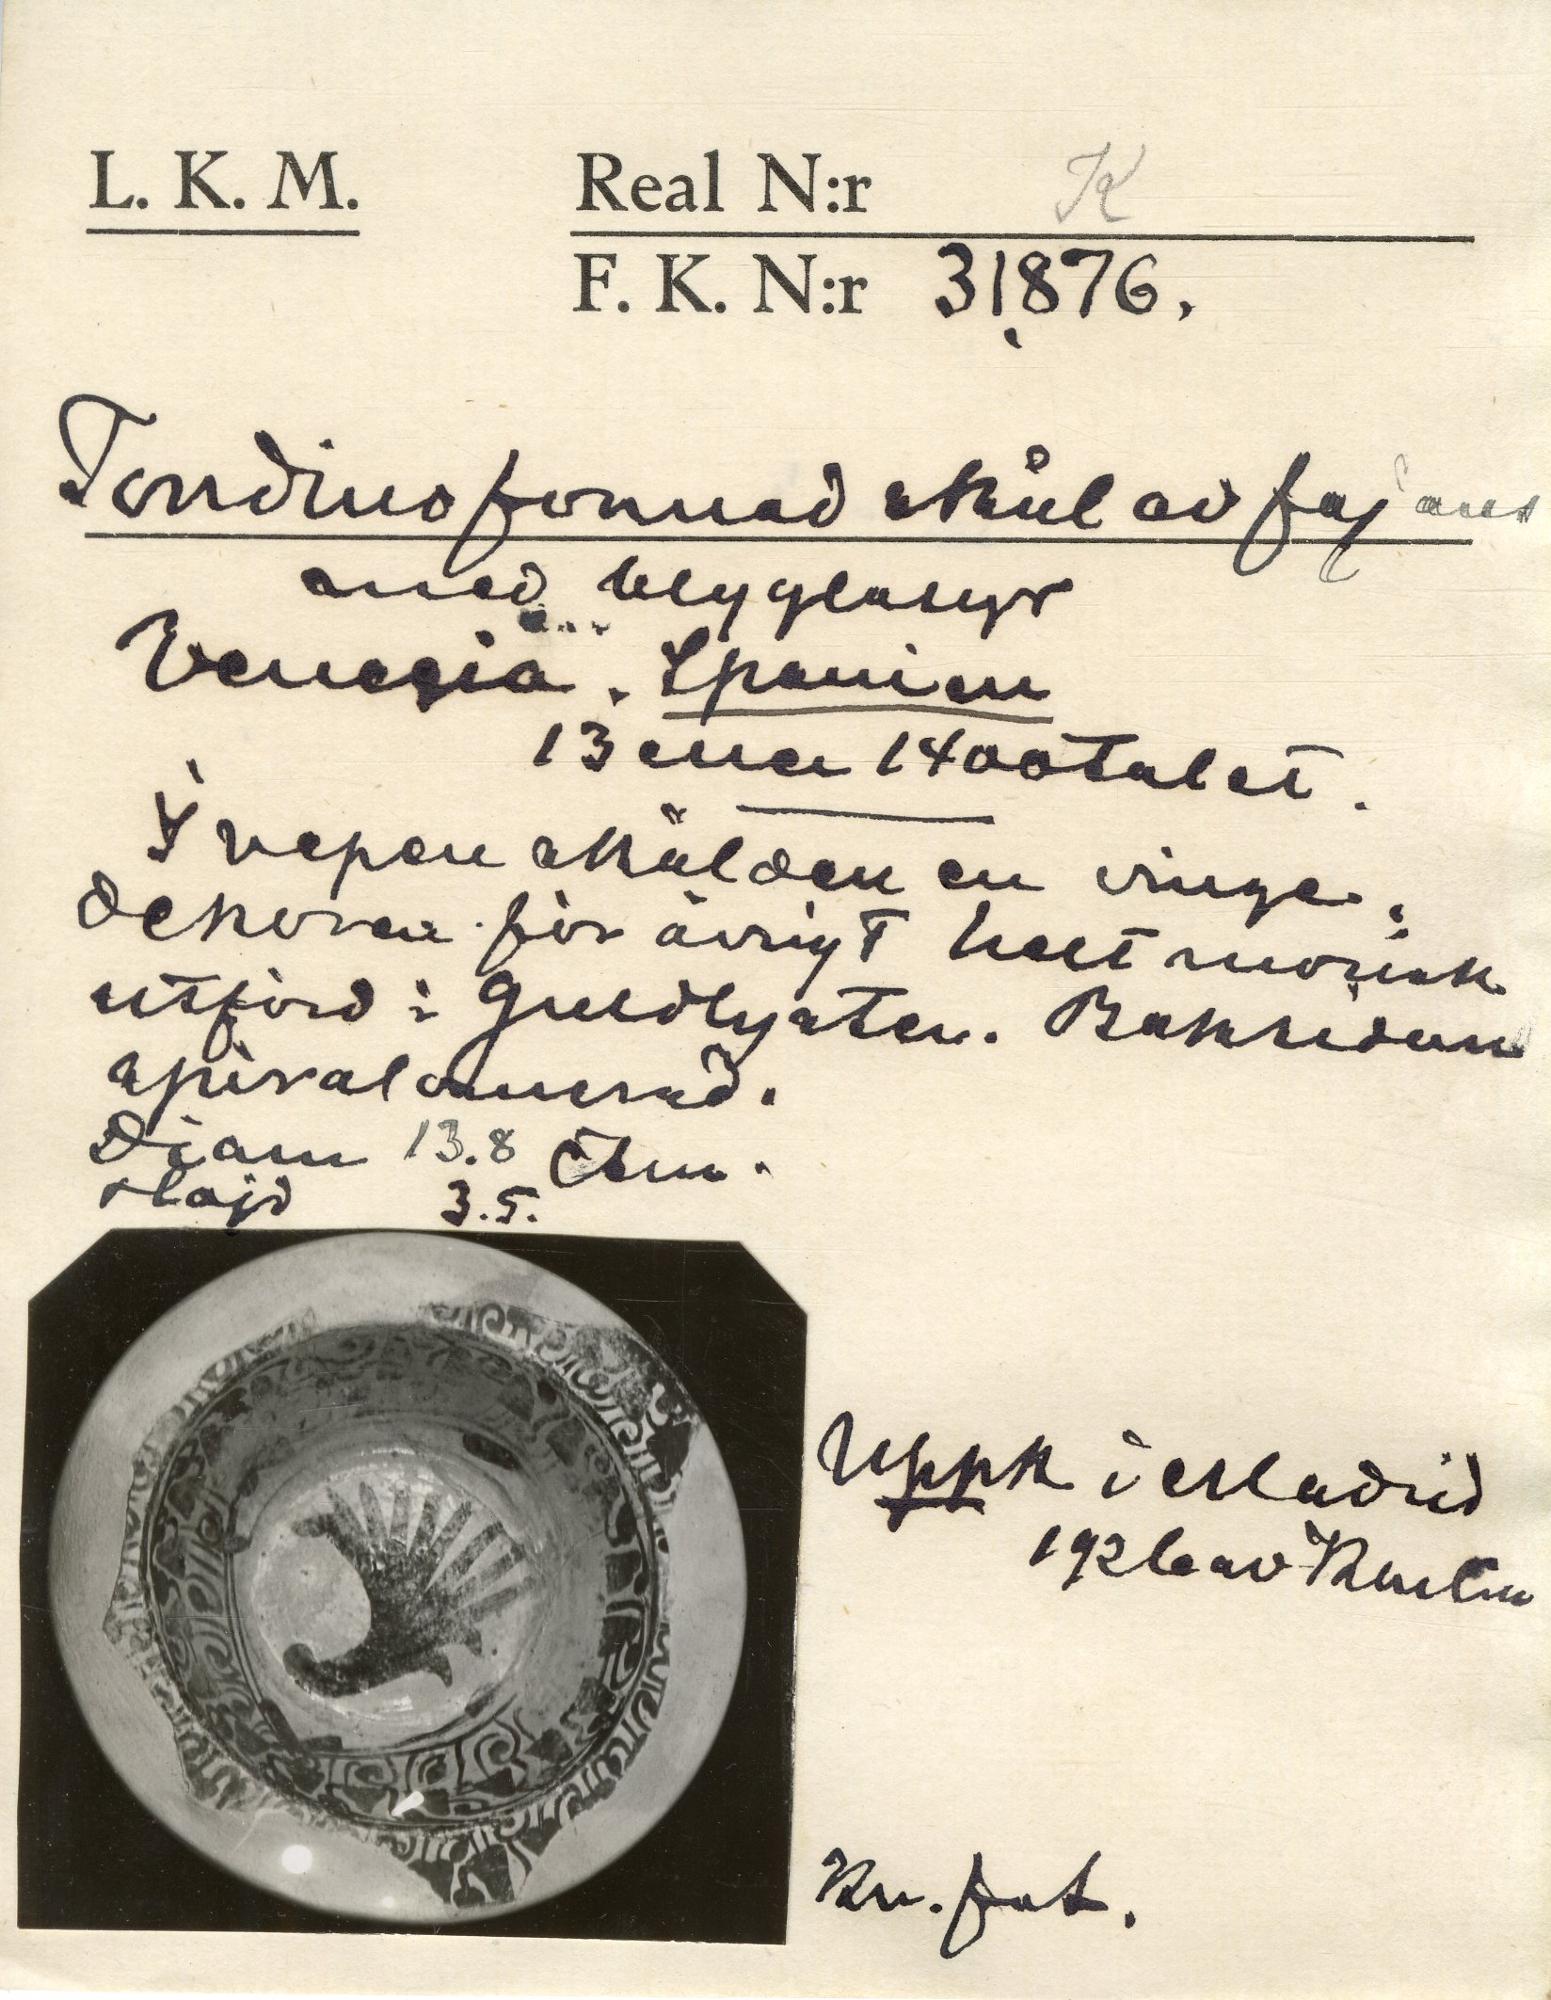 L. K. M.
Real N:r K
F. K. N:r 31876.
Tondinoformad skål av fajans
med blyglasyr
Venegia. Spanien
13 eller 1400talet.
I vapenskölden en vinge.
Dekoren för övrigt helt morisk
utförd i Guldlyster. Baksidan
spiralornerad.
Diam 13.8 Ctm.
Höjd 3.5.
Uppk i Madrid
192 av
Kn. fat.